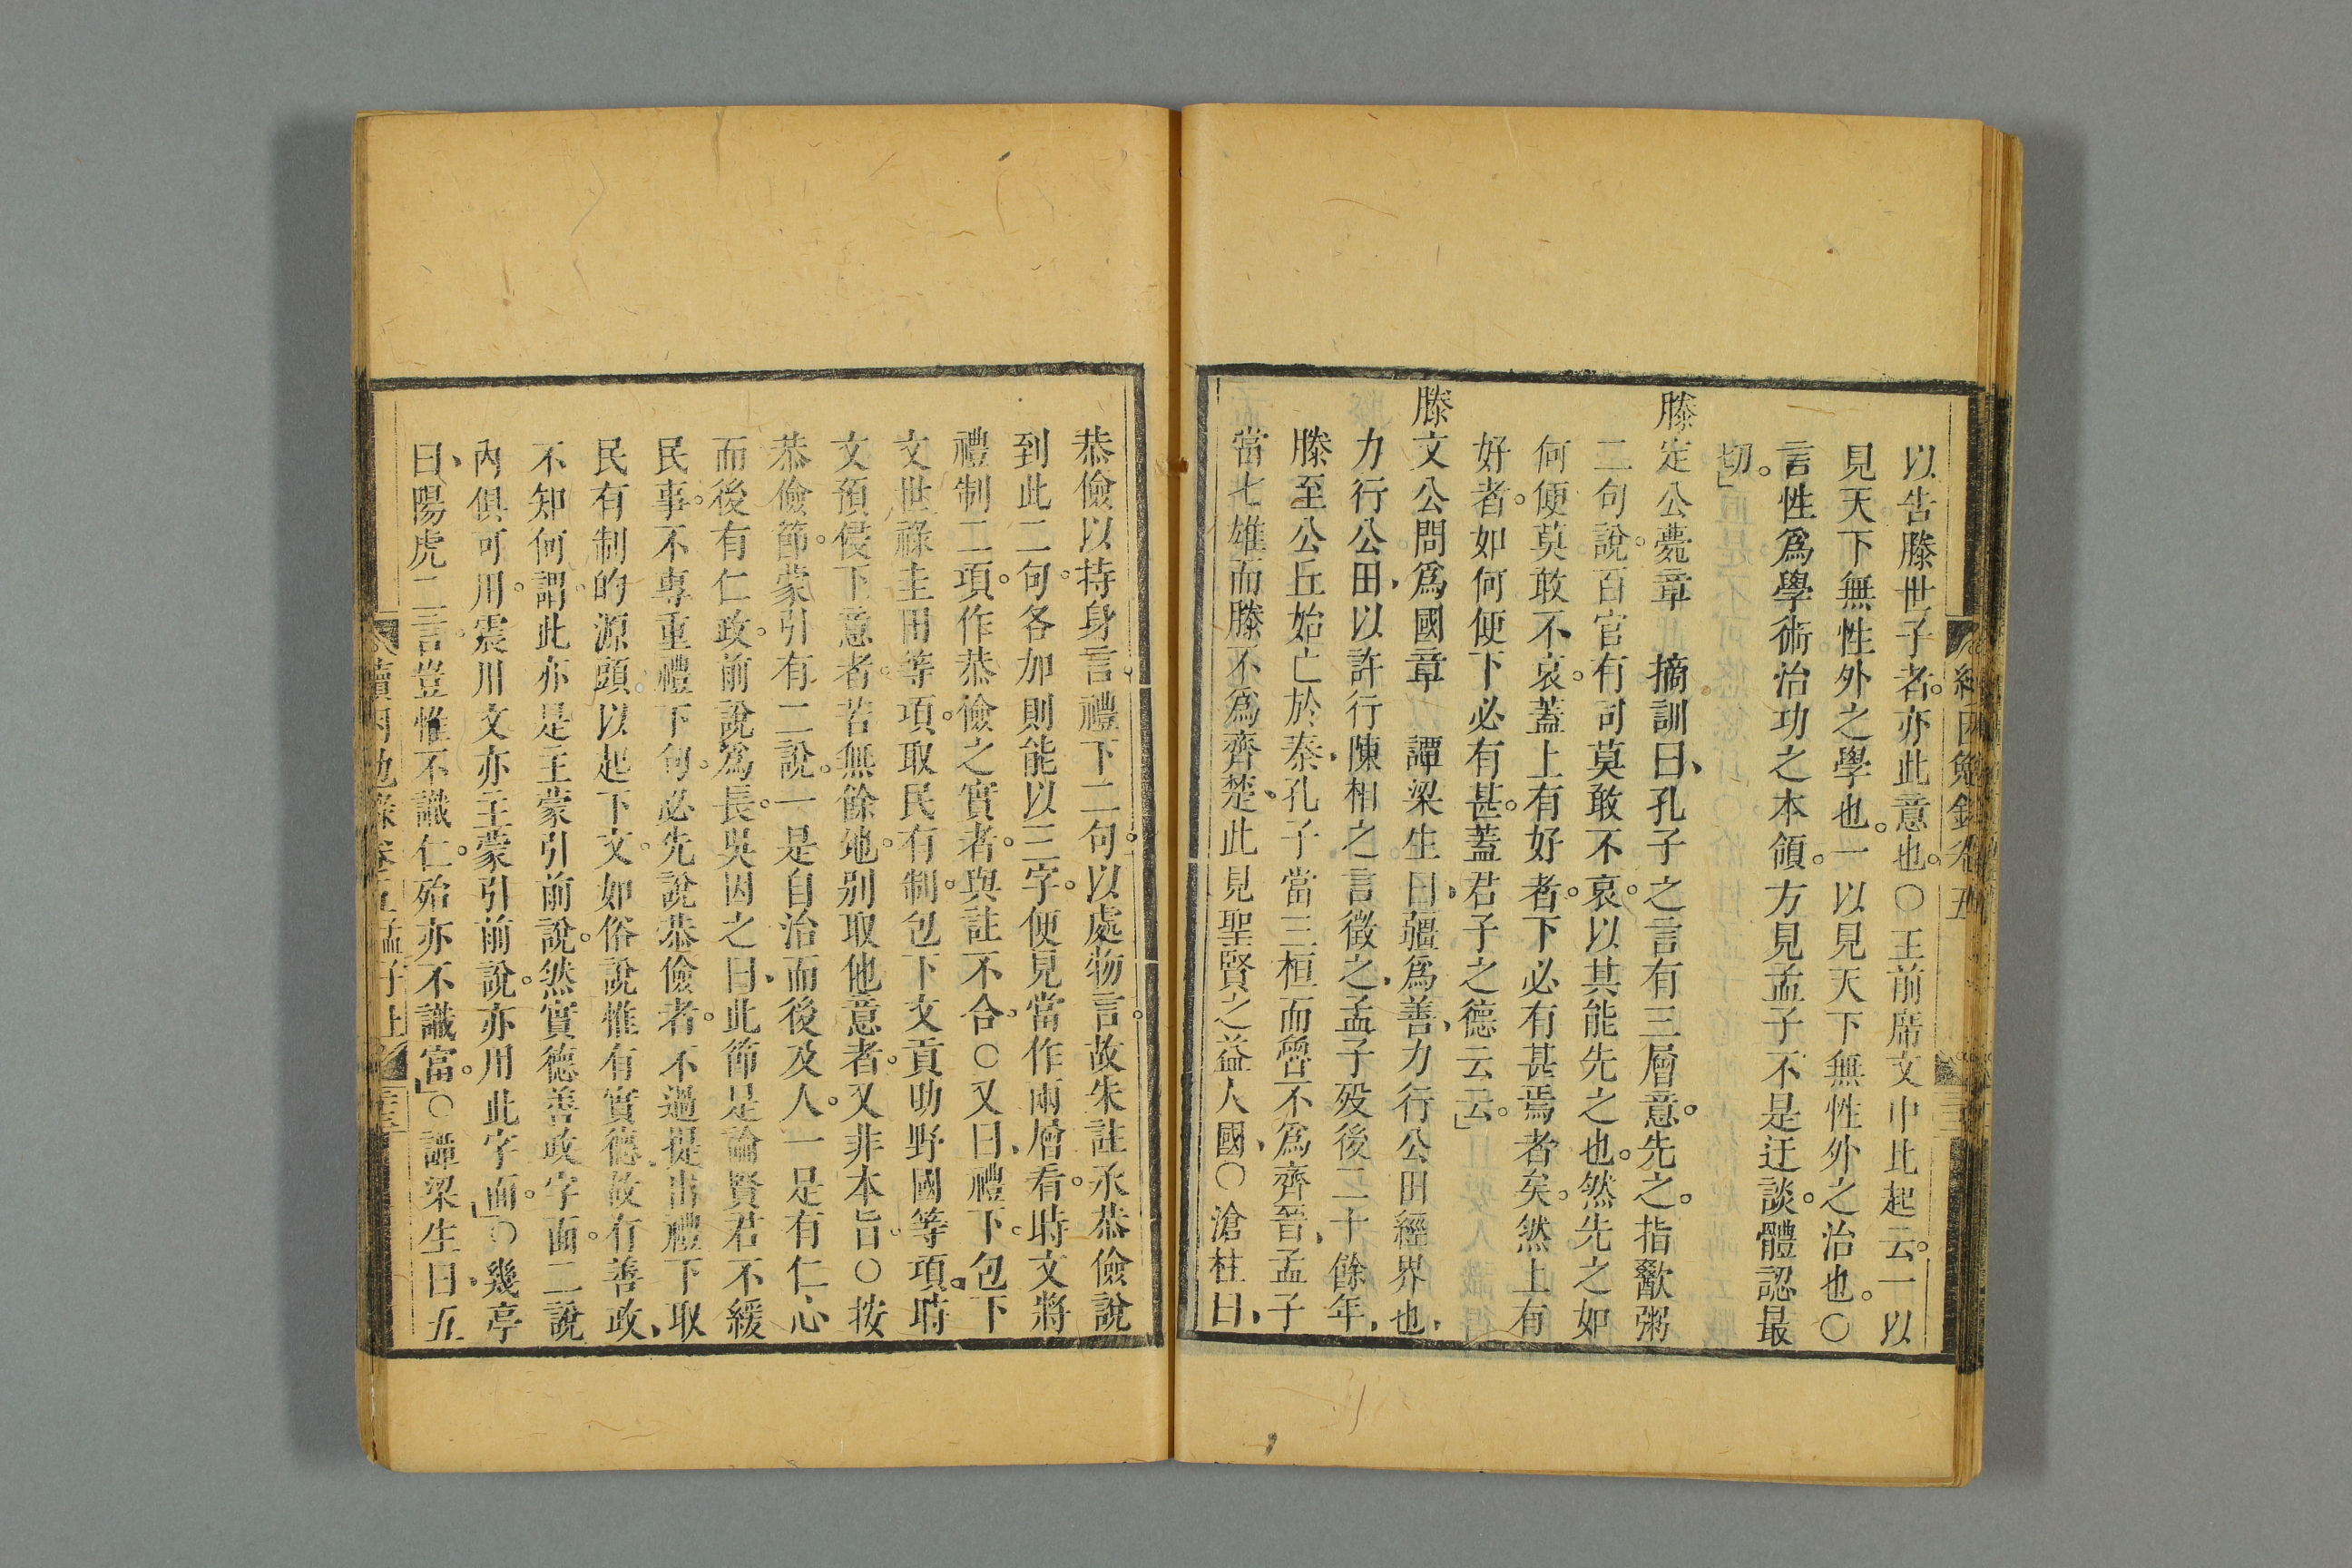 以告滕世子者。亦此意也。○王前席文中比起云。一以
見天下無性外之學也。一以見天下無性外之治也。○
言性爲學術治功之本領。方見孟子不是迂談。體認最
切。」
滕定公薨章　摘訓曰、孔子之言有三層意。先之。指歠粥
二句說。百官有司莫敢不哀。以其能先之也。然先之如
何便莫敢不哀。蓋上有好者。下必有甚焉者矣。然上有
好者。如何便下必有甚。蓋君子之德云云。」
滕文公問爲國章　譚梁生曰、彊爲善、力行公田經界也、
力行公田、以許行陳相之言徵之、孟子歿後二十餘年、
滕至公丘始亡於秦、孔子當三桓而魯不爲齊晉、孟子
當七雄而滕不爲齊楚、此見聖賢之益人國、○滄柱曰、
恭儉以持身言。禮下二句。以處物言。故朱註承恭儉說
到此二句。各加則能以三字。便見當作兩層看。時文將
禮制二項。作恭儉之實者。與註不合。○又曰、禮下。包下
文世祿圭田等項。取民有制。包下文貢助野國等項。時
文預侵下意者。若無餘地。别取他意者。又非本旨。○按
恭儉節。蒙引有二說。一是自治而後及人。一是有仁心
而後有仁政。前說爲長。吳因之曰、此節是論賢君不緩
民事。不專重禮下句。必先說恭儉者。不過提出禮下取
民有制的源頭。以起下文。如俗說惟有實德。故有善政、
不知何謂。此亦是主蒙引前說。然實德善政字面。二說
內俱可用。震川文亦主蒙引前說。亦用此字面。」○幾亭
曰、陽虎二言。豈惟不識仁。殆亦不識富。」○譚梁生曰、五
續困勉錄卷五孟子上